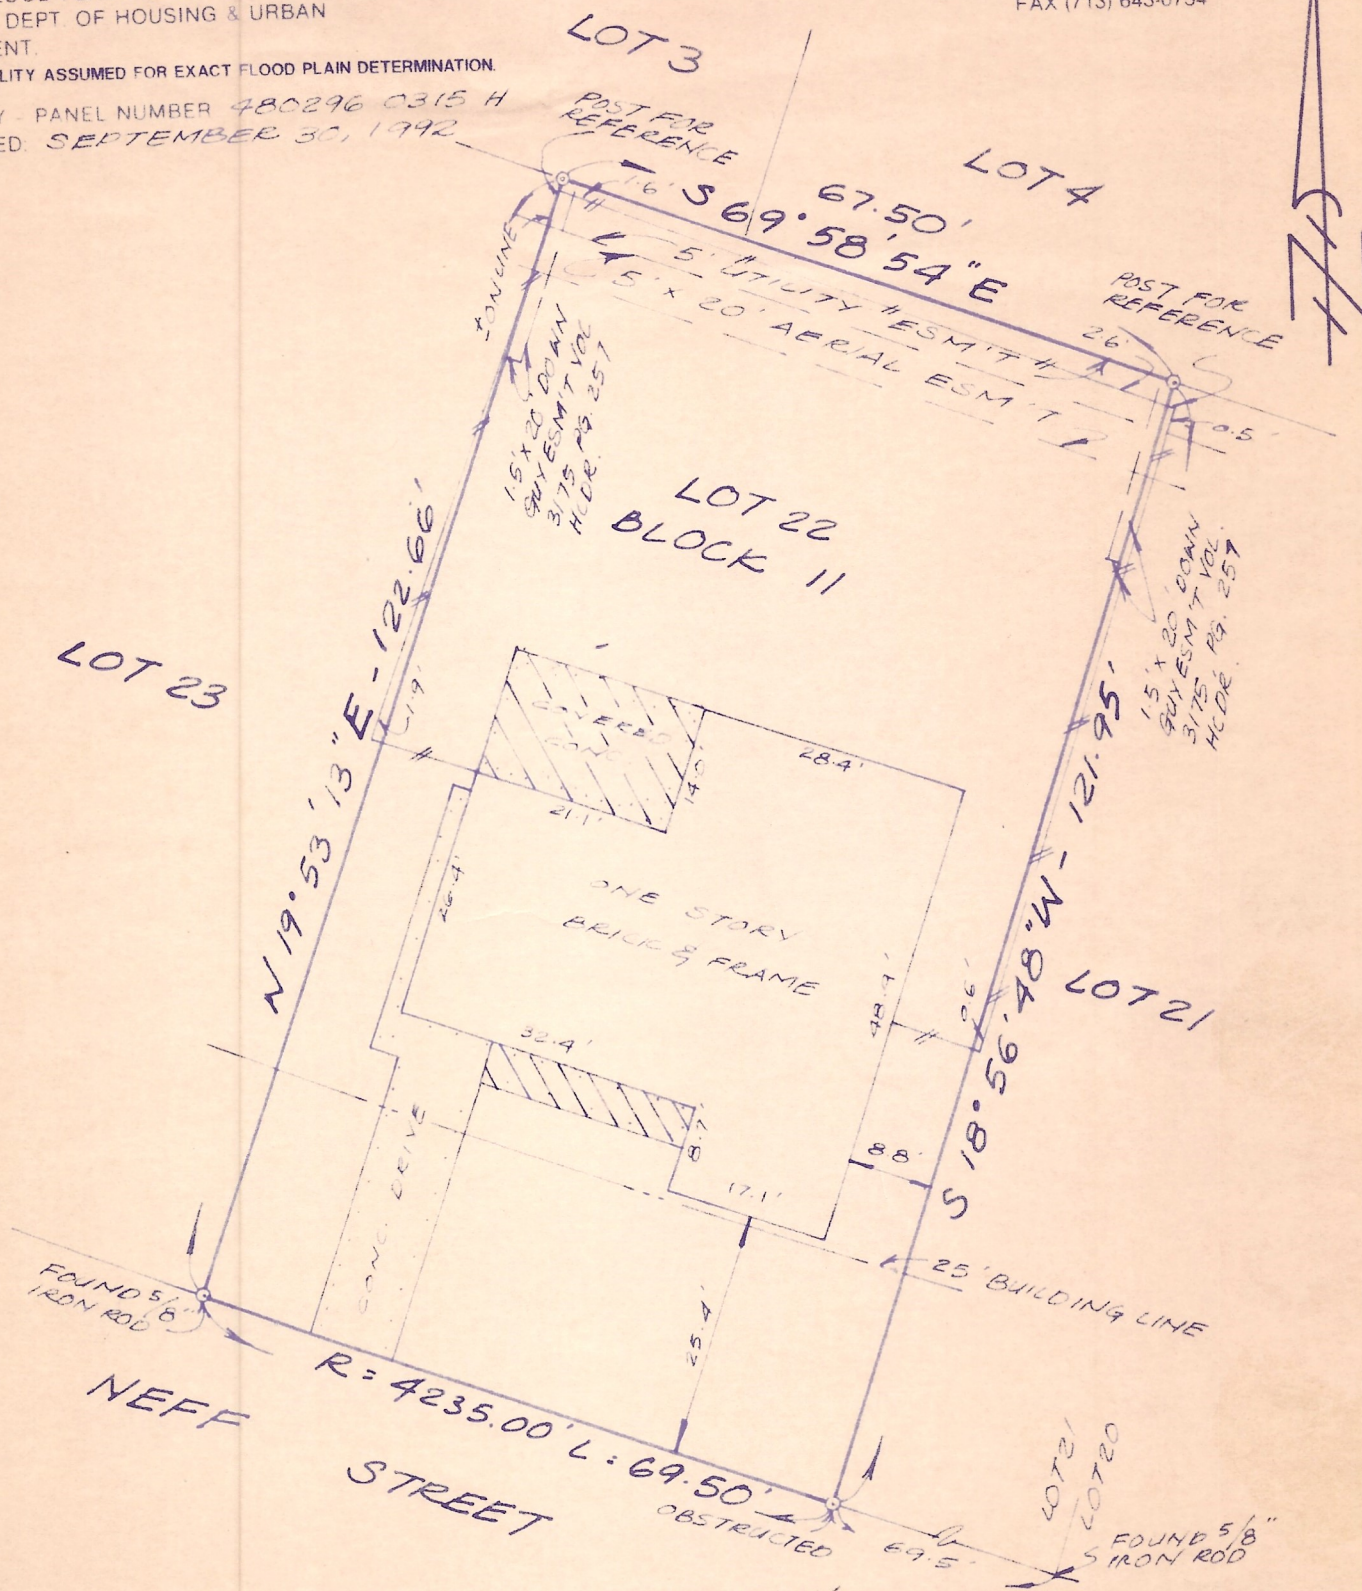 DEPT. OF HOUSING & URBAN
FAX (713) 643-0754
LITY ASSUMED FOR EXACT FLOOD PLAIN DETERMINATION.
- PANEL NUMBER 480296 0315 H
ED: SEPTEMBER 30, 1992
LOT 3
POST FOR
REFERENCE
LOT 4
1.6'
67.50'
S 69° 58' 54" E
5' UTILITY ESM'T
5' X 20' AERIAL ESM'T
POST FOR
REFERENCE
2.6'
0.5'
± ONLINE
1.5' X 20' DOWN
GUY ESM'T VOL
3175 PG. 257
HCDR.
LOT 22
BLOCK 11
1.5' X 20' DOWN
GUY ESM'T VOL.
3175 PG. 257
HCDR.
LOT 23
N 19° 53' 13" E - 122.66'
1.9'
COVERED
CONC.
14.0'
28.4'
21.1'
26.4'
ONE STORY
BRICK & FRAME
S 18° 56' 48" W - 121.95'
LOT 21
48.9'
0.6'
32.4'
8.7'
8.8'
17.1'
CONC. DRIVE
25' BUILDING LINE
25.4'
FOUND 5/8"
IRON ROD
R = 4235.00' L = 69.50'
NEFF
STREET
OBSTRUCTED
69.5'
LOT 21
LOT 20
FOUND 5/8"
IRON ROD